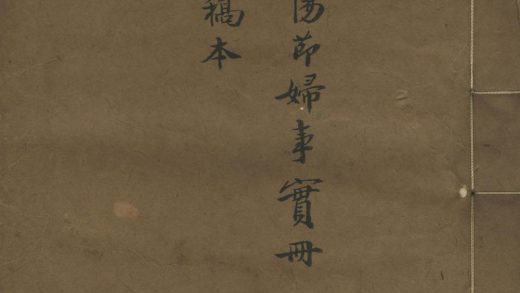 節婦事實冊
稿本